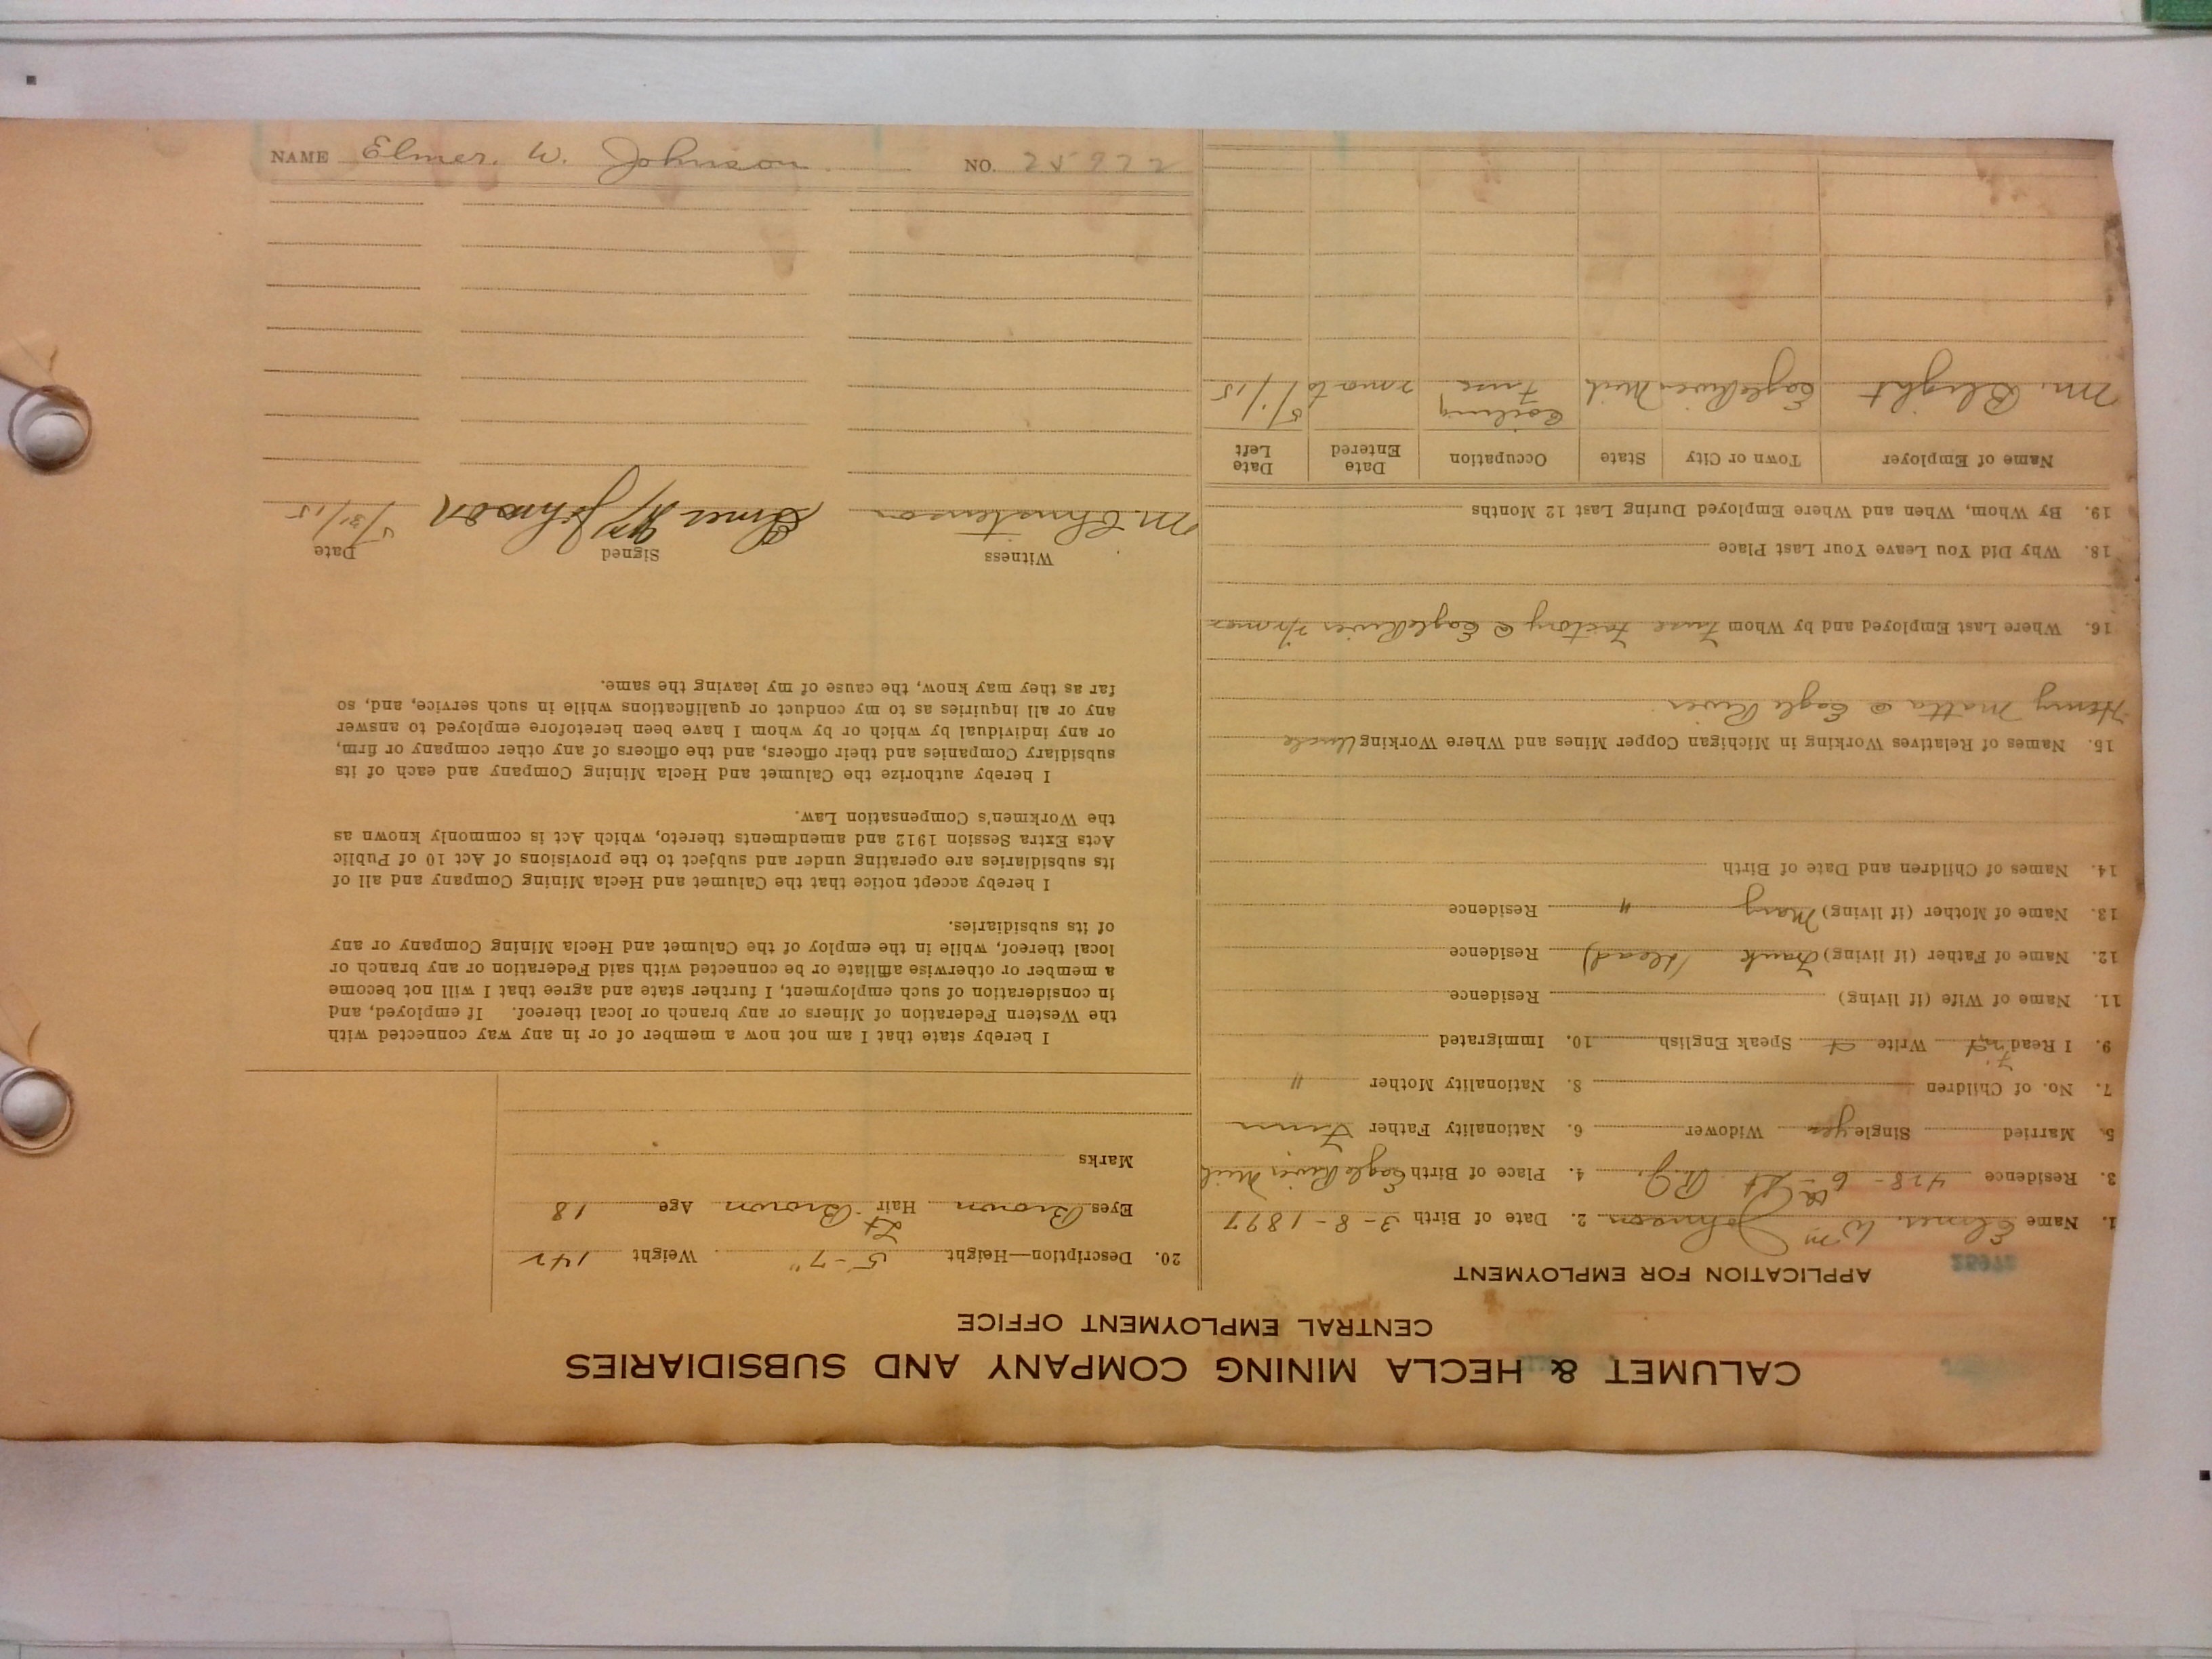 CALUMET & HECLA MINING COMPANY AND SUBSIDIARIES
CENTRAL EMPLOYMENT OFFICE
APPLICATION FOR EMPLOYMENT
25972
1. Name Elmer Wm Johnson 2. Date of Birth 3-8-1897
3. Residence 428-6th St 4. Place of Birth Eagle River Mich
5. Married Single yes Widower 6. Nationality Father Finn
7. No. of Children 8. Nationality Mother "
9. I Read Write Speak English 10. Immigrated
11. Name of Wife (if living) Residence
12. Name of Father (if living) Frank (dead) Residence
13. Name of Mother (if living) Mary " Residence
14. Names of Children and Date of Birth
15. Names of Relatives Working in Michigan Copper Mines and Where Working Uncle
Henry Matta @ Eagle River
16. Where Last Employed and by Whom Fuse Factory @ Eagle River
18. Why Did You Leave Your Last Place
19. By Whom, When and Where Employed During Last 12 Months
Name of Employer Town or City State Occupation Date Entered Date Left
M. Blight Eagle River Mich Coiling Fuse 2 mo to 5/1/15
20. Description—Height 5-7" Weight 142
Eyes Brown Hair Lt Brown Age 18
Marks
I hereby state that I am not now a member of or in any way connected with
the Western Federation of Miners or any branch or local thereof. If employed, and
in consideration of such employment, I further state and agree that I will not become
a member or otherwise affiliate or be connected with said Federation or any branch or
local thereof, while in the employ of the Calumet and Hecla Mining Company or any
of its subsidiaries.
I hereby accept notice that the Calumet and Hecla Mining Company and all of
its subsidiaries are operating under and subject to the provisions of Act 10 of Public
Acts Extra Session 1912 and amendments thereto, which Act is commonly known as
the Workmen's Compensation Law.
I hereby authorize the Calumet and Hecla Mining Company and each of its
subsidiary Companies and their officers, and the officers of any other company or firm,
or any individual by which or by whom I have been heretofore employed to answer
any or all inquiries as to my conduct or qualifications while in such service, and, so
far as they may know, the cause of my leaving the same.
Witness Signed Date
M Christenson Elmer Wm Johnson 5/31/15
NAME Elmer. W. Johnson. NO. 25972